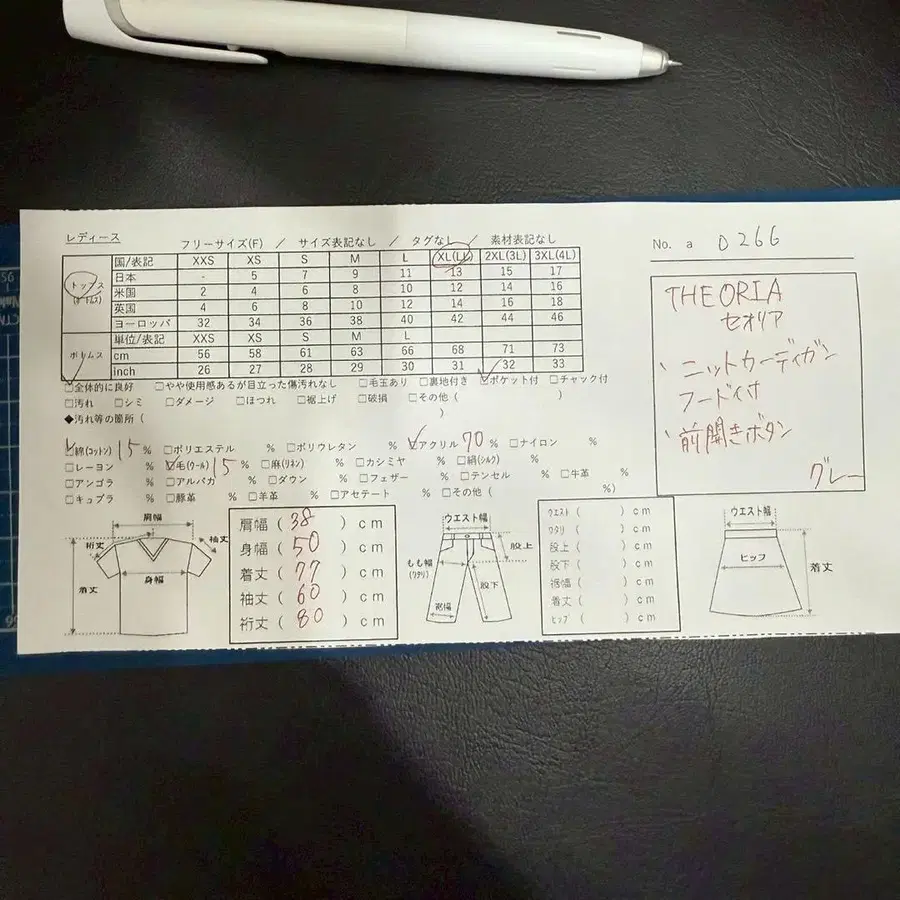 レディース
フリーサイズ(F) / サイズ表記なし / タグなし / 素材表記なし
No. a 0266
トップス
国/表記 XXS XS S M L XL(LL) 2XL(3L) 3XL(4L)
日本 - 5 7 9 11 13 15 17
米国 2 4 6 8 10 12 14 16
英国 4 6 8 10 12 14 16 18
ヨーロッパ 32 34 36 38 40 42 44 46
ボトムス
単位/表記 XXS XS S M L
cm 56 58 61 63 66 68 71 73
inch 26 27 28 29 30 31 32 33
☑全体的に良好 □やや使用感あるが目立った傷汚れなし □毛玉あり □裏地付き ☑ポケット付 □チャック付
□汚れ □シミ □ダメージ □ほつれ □裾上げ □破損 □その他 ( )
◆汚れ等の箇所 ( )
☑綿(コットン) 15 % □ポリエステル % □ポリウレタン % ☑アクリル 70 % □ナイロン %
□レーヨン % ☑毛(ウール) 15 % □麻(リネン) % □カシミヤ % □絹(シルク) %
□アンゴラ % □アルパカ % □ダウン % □フェザー % □テンセル % □牛革 %
□キュプラ % □豚革 % □羊革 % □アセテート % □その他 ( %)
THEORIA
セオリア
、ニットカーディガン
フード付
、前開きボタン
グレー
肩幅
裄丈
袖丈
着丈
身幅
肩幅 ( 38 ) cm
身幅 ( 50 ) cm
着丈 ( 77 ) cm
袖丈 ( 60 ) cm
裄丈 ( 80 ) cm
ウエスト幅
股上
もも幅
(ワタリ)
股下
裾幅
ウエスト ( ) cm
ワタリ ( ) cm
股上 ( ) cm
股下 ( ) cm
裾幅 ( ) cm
着丈 ( ) cm
ヒップ ( ) cm
ウエスト幅
ヒップ
着丈